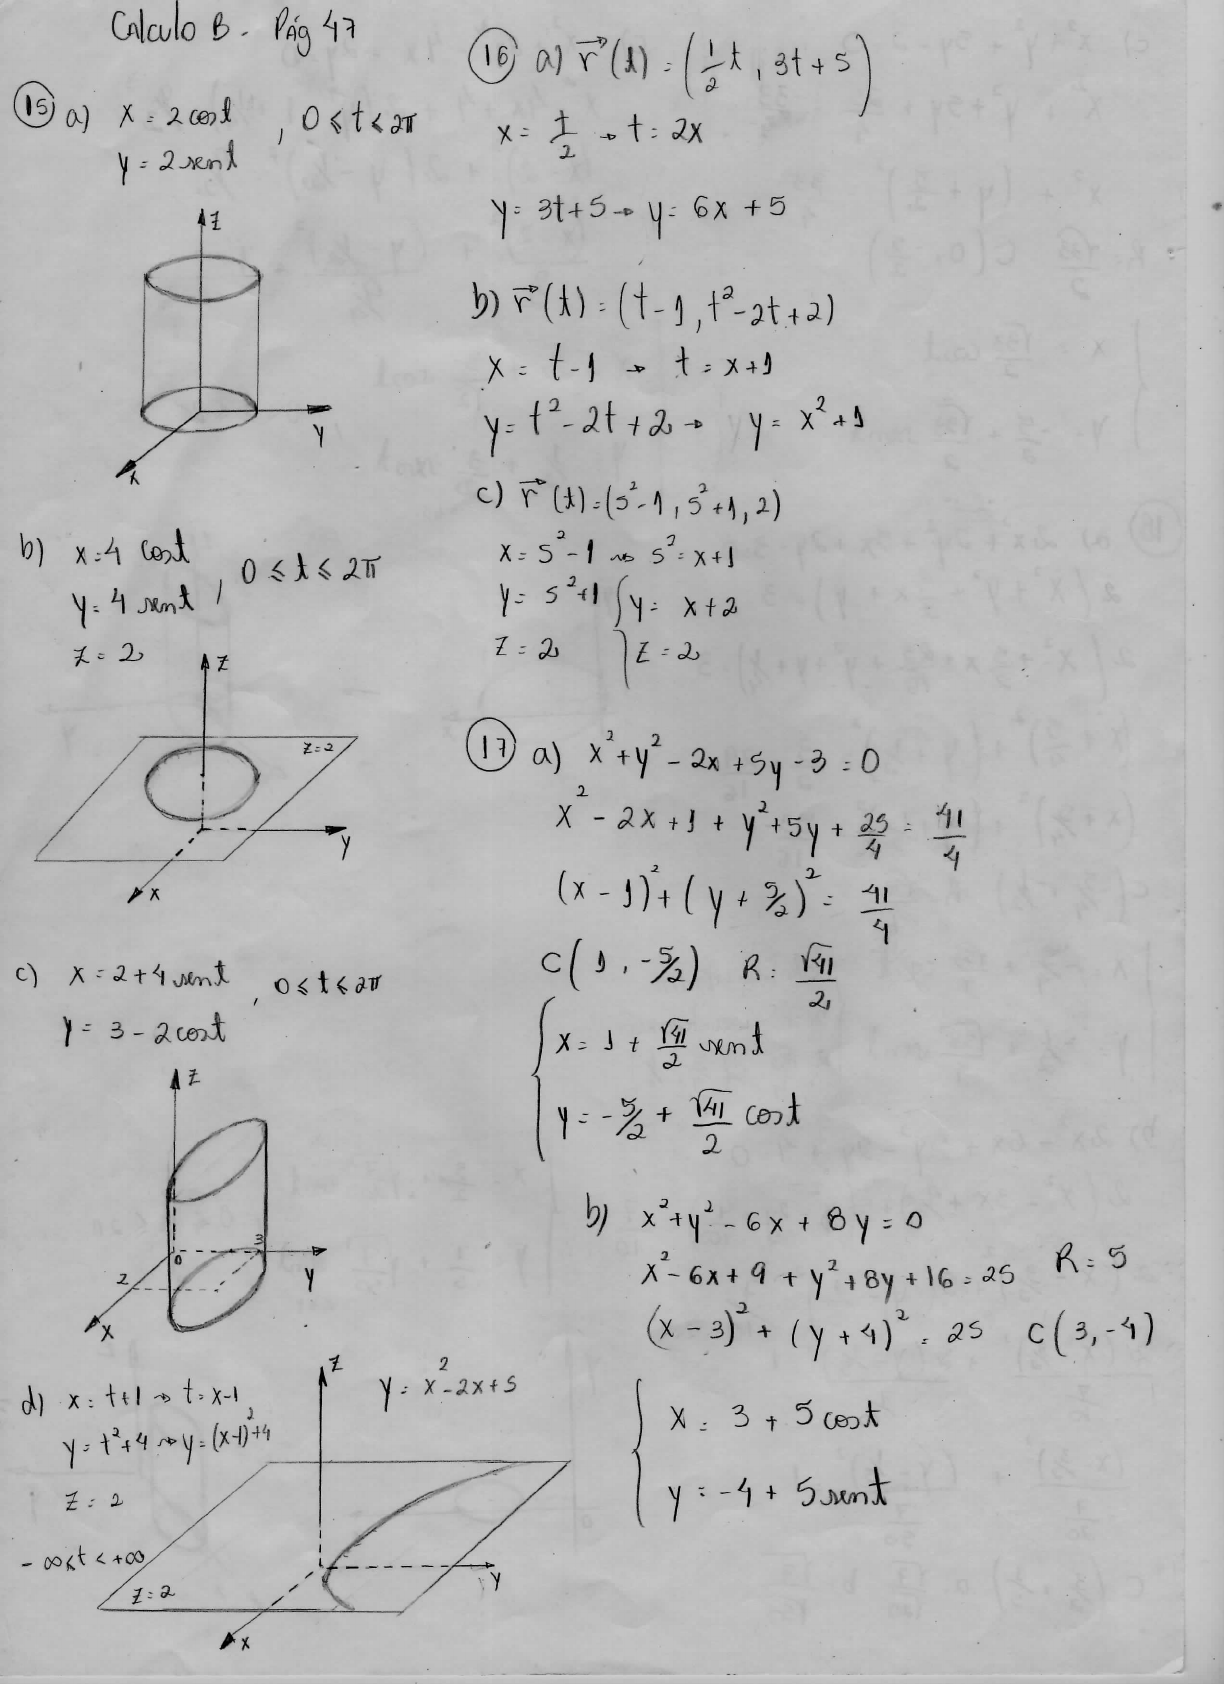 Calculo B - Pág 47
15 a) x = 2 cost , 0 ≤ t ≤ 2π
y = 2 sent
z
y
x
b) x = 4 cost
y = 4 sent , 0 ≤ t ≤ 2π
z = 2
z
z = 2
y
x
c) x = 2 + 4 sent , 0 ≤ t ≤ 2π
y = 3 - 2 cost
z
3
0
2
y
x
d) x = t + 1 → t = x - 1
y = t² + 4 → y = (x-1)² + 4
z = 2
-∞ < t < +∞
z
y = x² - 2x + 5
z = 2
y
x
16 a) r⃗(t) = (1/2 t, 3t + 5)
x = t/2 → t = 2x
y = 3t + 5 → y = 6x + 5
b) r⃗(t) = (t - 1, t² - 2t + 2)
x = t - 1 → t = x + 1
y = t² - 2t + 2 → y = x² + 1
c) r⃗(t) = (s² - 1, s² + 1, 2)
x = s² - 1 → s² = x + 1
y = s² + 1 { y = x + 2
z = 2 { z = 2
17 a) x² + y² - 2x + 5y - 3 = 0
x² - 2x + 1 + y² + 5y + 25/4 = 41/4
(x - 1)² + (y + 5/2)² = 41/4
C(1, -5/2) R = √41/2
{ x = 1 + √41/2 sent
y = -5/2 + √41/2 cost
b) x² + y² - 6x + 8y = 0
x² - 6x + 9 + y² + 8y + 16 = 25 R = 5
(x - 3)² + (y + 4)² = 25 C(3, -4)
{ x = 3 + 5 cost
y = -4 + 5 sent